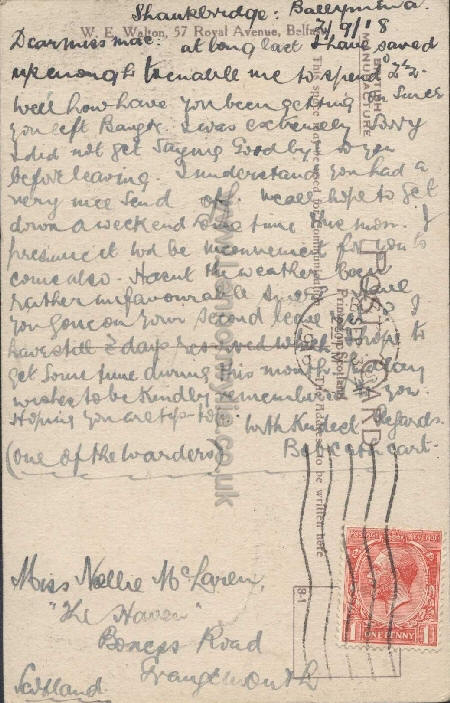 Shankbridge. Ballymena.
7/9/18
W. E. Walton, 57 Royal Avenue, Belfast
Dear miss mac. at long last I have saved
up enough to enable me to spend
Well how have you been getting on Since
you left Bangor I was extremely Sorry
I did not get Saying Goodbye to you
before leaving. I understand you had a
very nice Send off. we all hope to get
down a weekend some time this mon. I
presume it wd be inconvenient for you to
come also. Hasent the weather been
rather unfavourable Have
you gone on your Second leave yet I
have still 2 days reserved which I hope to
get Some time during this month.
wishes to be Kindly remembered to you
Hoping you are tip-top.
With Kindest Regards.
(one of the warders) Cathcart-
Miss Nellie McLaren,
"The Haven"
Boness Road
Grangemouth
Scotland.
BRITISH
MANUFACTURE
POST CARD
This space may be used for Communication
The Address to be written here
Printed in Scotland
POSTAGE REVENUE
1 ONE PENNY 1
B-1